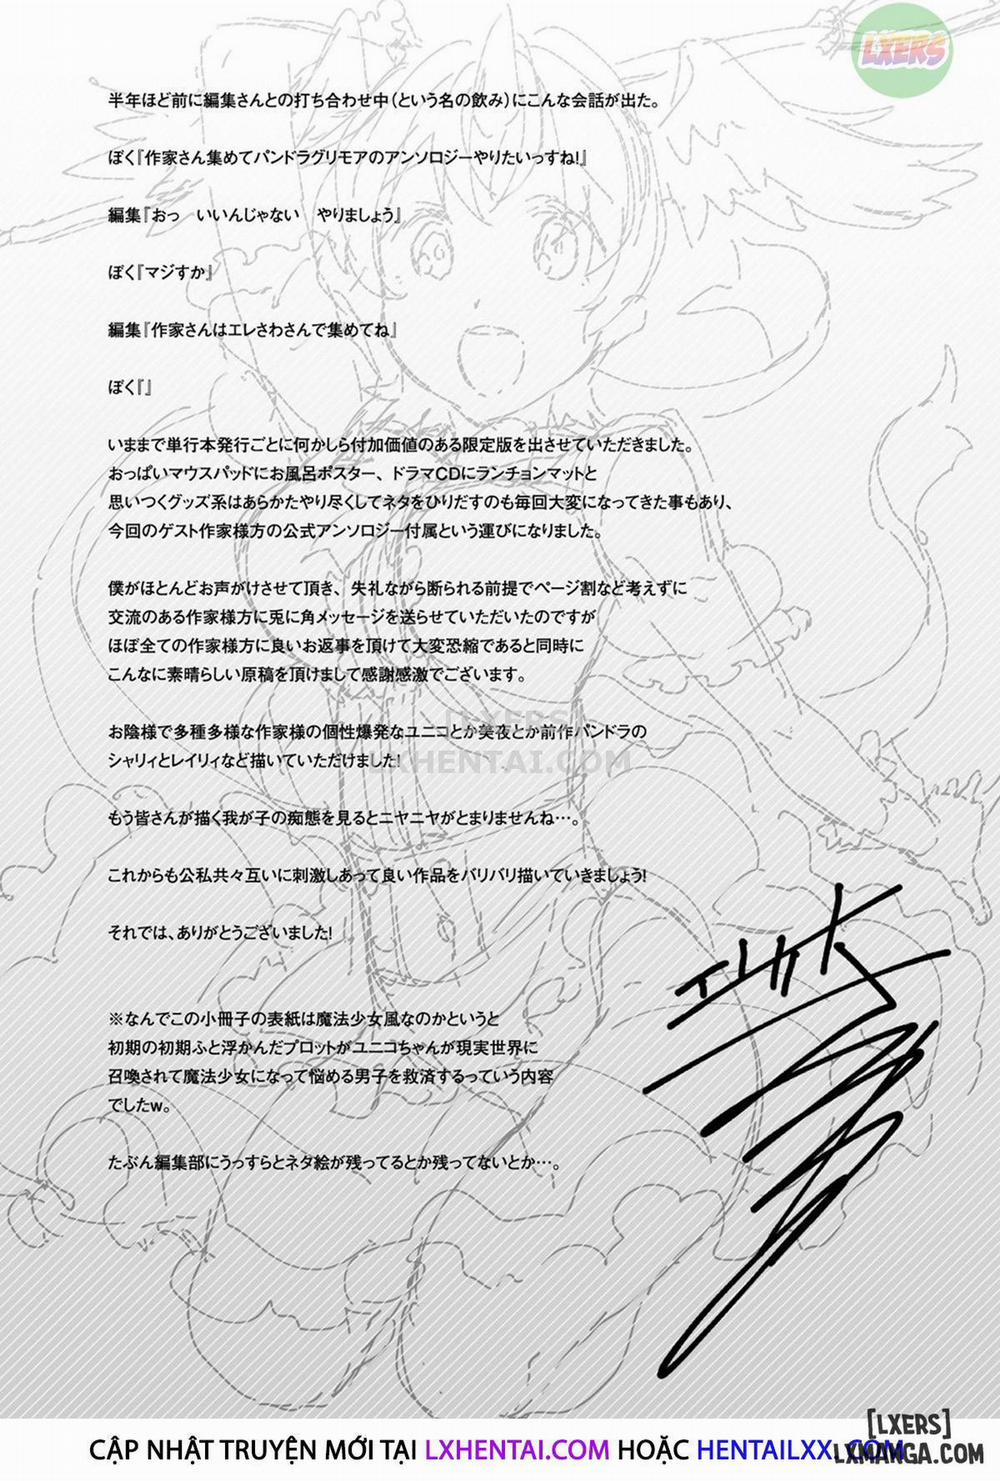 LXERS
半年ほど前に編集さんとの打ち合わせ中(という名の飲み)にこんな会話が出た。
ぼく『作家さん集めてパンドラグリモアのアンソロジーやりたいっすね!』
編集『おっ　いいんじゃない　やりましょう』
ぼく『マジすか』
編集『作家さんはエレさわさんで集めてね』
ぼく『』
いままで単行本発行ごとに何かしら付加価値のある限定版を出させていただきました。
おっぱいマウスパッドにお風呂ポスター、ドラマCDにランチョンマットと
思いつくグッズ系はあらかたやり尽くしてネタをひりだすのも毎回大変になってきた事もあり、
今回のゲスト作家様方の公式アンソロジー付属という運びになりました。
僕がほとんどお声がけさせて頂き、失礼ながら断られる前提でページ割など考えずに
交流のある作家様方に兎に角メッセージを送らせていただいたのですが
ほぼ全ての作家様方に良いお返事を頂けて大変恐縮であると同時に
こんなに素晴らしい原稿を頂けまして感謝感激でございます。
お陰様で多種多様な作家様の個性爆発なユニコとか美夜とか前作パンドラの
シャリィとレイリィなど描いていただけました!
LXERS
LXHENTAI.COM
もう皆さんが描く我が子の痴態を見るとニヤニヤがとまりませんね…。
これからも公私共々互いに刺激しあって良い作品をバリバリ描いていきましょう!
それでは、ありがとうございました!
※なんでこの小冊子の表紙は魔法少女風なのかというと
初期の初期ふと浮かんだプロットがユニコちゃんが現実世界に
召喚されて魔法少女になって悩める男子を救済するっていう内容
でしたw。
たぶん編集部にうっすらとネタ絵が残ってるとか残ってないとか…。
[LXERS]
LXMANGA.COM
CẬP NHẬT TRUYỆN MỚI TẠI LXHENTAI.COM HOẶC HENTAILXX.COM